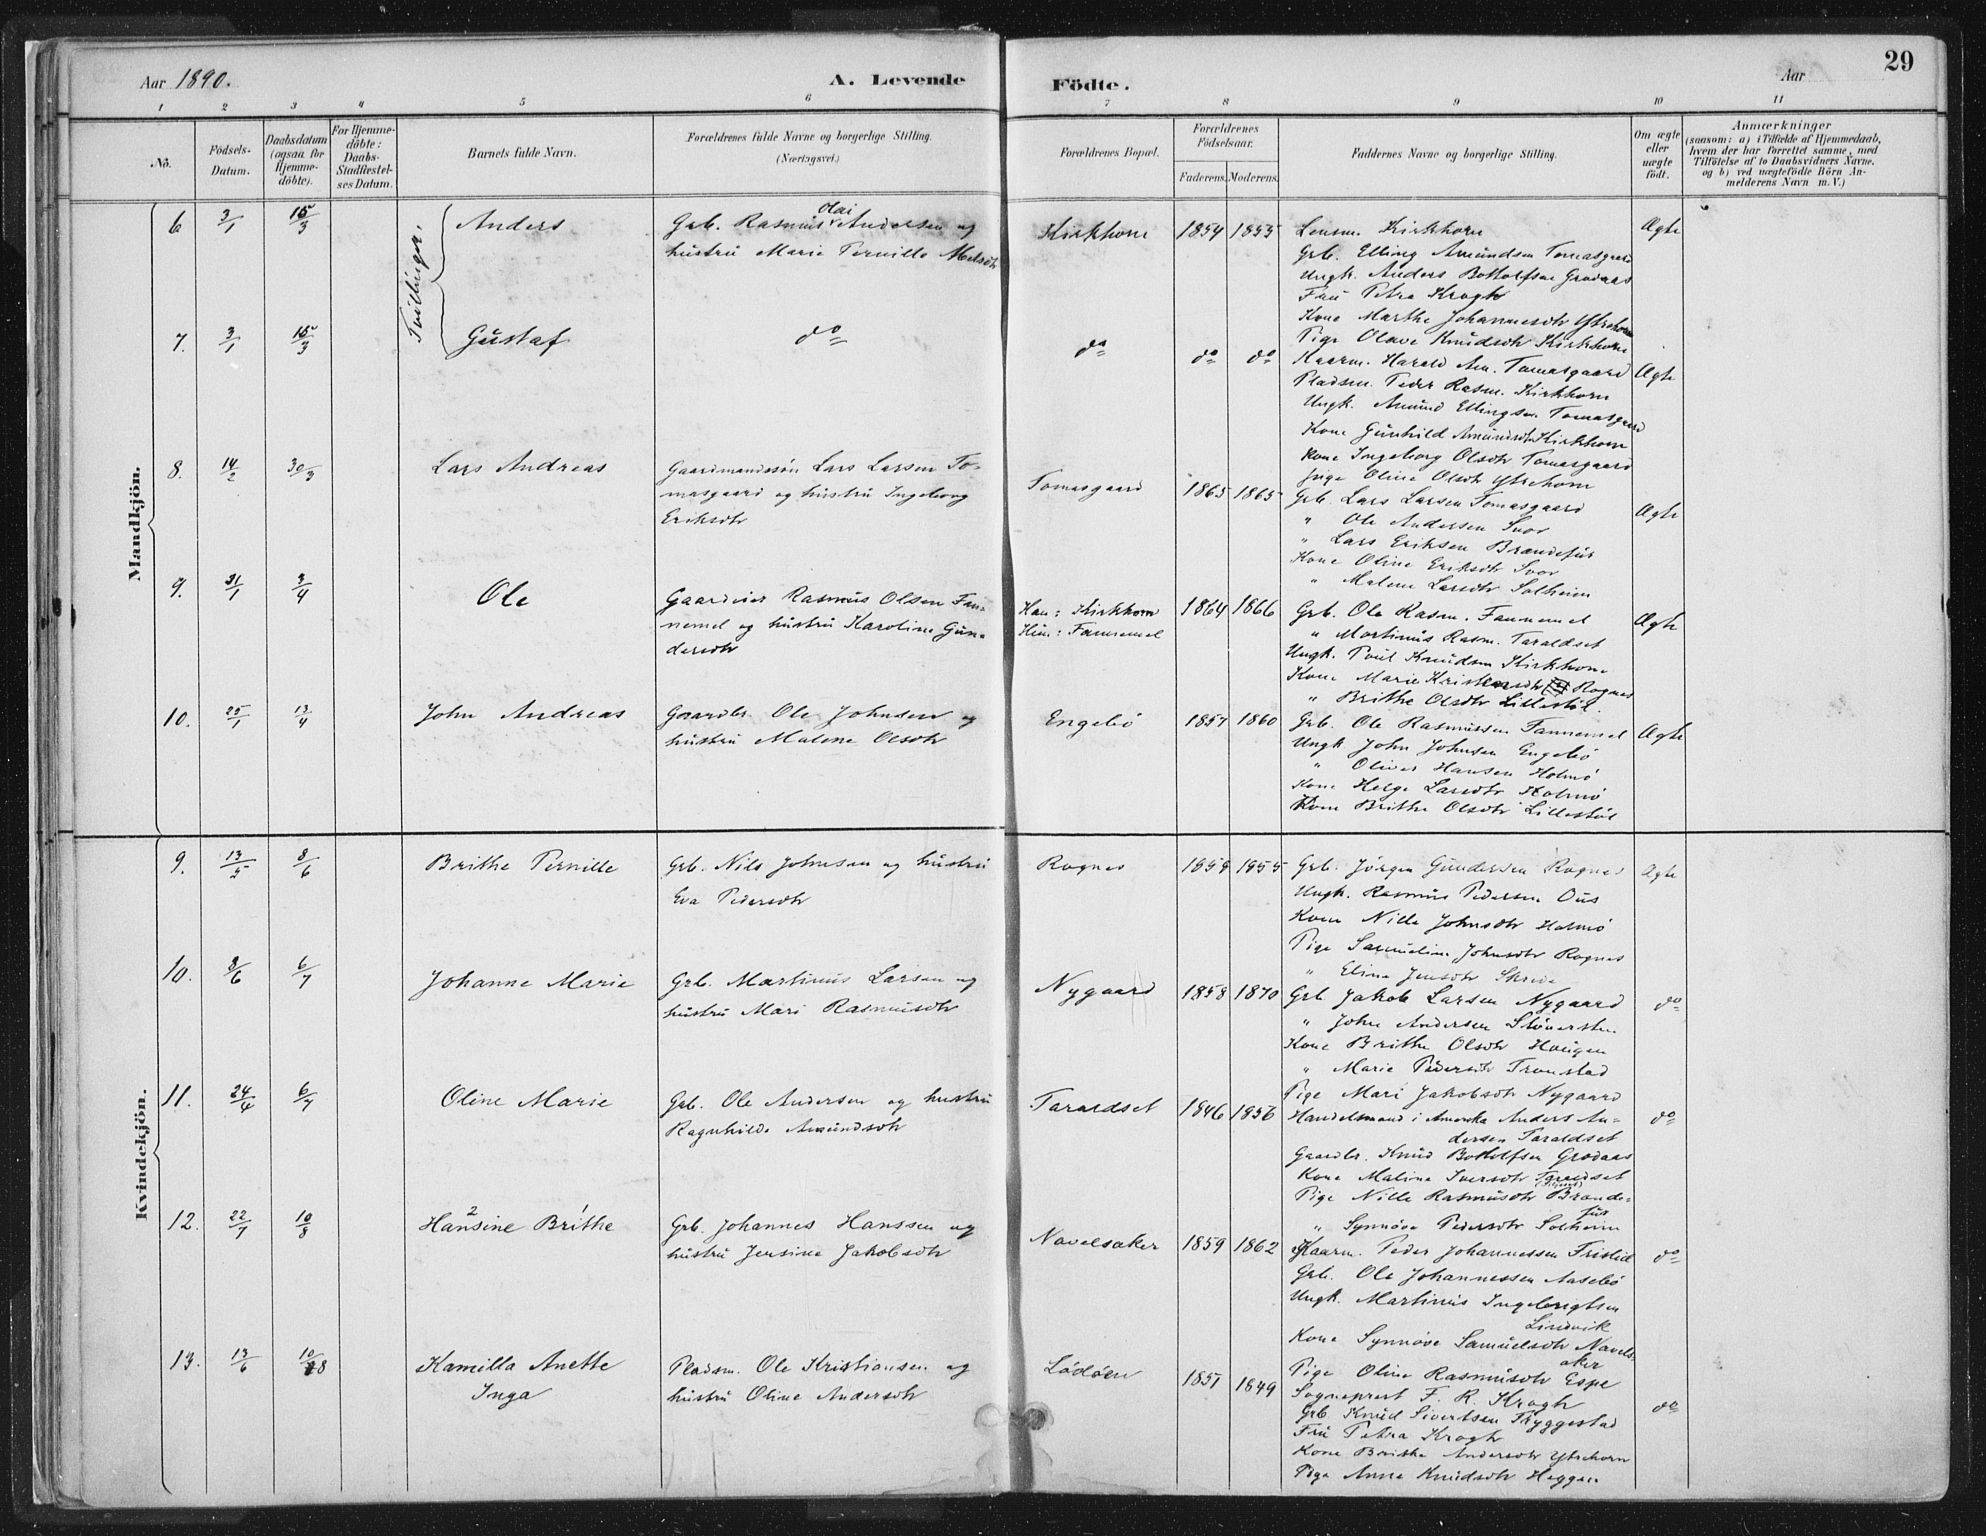 29
Aar 1890.
A. Levende
Födte.
Aar
1 2 3 4 5 6 7 8 9 10 11
No.
Födsels-
Datum.
Daabsdatum
(ogsaa for
Hjemme-
döbte).
For Hjemme-
döbte:
Daabs-
Stadfæstel-
ses Datum.
Barnets fulde Navn.
Forældrenes fulde Navne og borgerlige Stilling.
(Næringsvei.)
Forældrenes Bopæl.
Forældrenes
Födselsaar.
Faderens. Moderens.
Faddernes Navne og borgerlige Stilling.
Om ægte
eller
uægte
födt.
Anmærkninger
(saasom: a) i Tilfælde af Hjemmedaab,
hvem der har forrettet samme, med
Tilföielse af to Daabsvidners Navne,
og b) ved uægtefödte Börn An-
melderens Navn m. V.)
Mandkjön.
Tvillinger.
6 3/1 15/3 Anders
Grb. Rasmus Olai Andersen og
hustru Marie Pernille
Kirkhorn 1854 1855
Lensm. Kirkhorn
Grb. Elling Amundsen Tomasgaard
Ungk. Anders Bottolfsen Grodaas
Fru Petra Krogh
Kone Marthe Johannesdtr Ytrehorn
Pige Olave Knudsdtr Kirkhorn
Ægte
7. 3/1 15/3 Gustaf
do
do do do
Kaarm. Harald Am. Tomasgaard
Pladsm. Peder Rasm. Kirkhorn
Ungk. Amund Ellingsen Tomasgaard
Kone Gunhild Amundsdtr Kirkhorn
Kone Ingeborg Olsdtr Tomasgaard
Pige Oline Olsdtr Ytrehorn
Ægte
8. 14/2 30/3 Lars Andreas
Gaardmandssön Lars Larsen To-
masgaard og hustru Ingeborg
Eriksdtr
Tomasgaard 1865 1865
Grb. Lars Larsen Tomasgaard
" Ole Andersen Svor
" Lars Eriksen Brandefür
Kone Oline Eriksdtr Svor
" Malene Larsdtr Solheim
Ægte
9. 31/1 3/4 Ole
Gaardeier Rasmus Olsen Fan-
nemel og hustru Karoline Gun-
dersdtr
Han: Kirkhorn
Hun: Fannemel
1864 1866
Grb. Ole Rasm. Fannemel
" Martinus Rasm. Taraldset
Ungk. Poul Knudsen Kirkhorn
Kone Marie Rognes
" Brithe Olsdtr Lillestöl.
Ægte
10. 25/1 13/4 John Andreas
Gaardbr. Ole Johnsen og
hustru Malene Olsdtr
Engebö 1857 1860
Grb. Ole Rasmussen Fannemel
Ungk. John Johnsen Engebö
" Oliver Hansen Holmö
Kone Helge Larsdtr Holmö
Kone Brithe Olsdtr Lillestöl
Ægte
Kvindekjön.
9. 13/5 8/6 Brithe Pernille
Grb. Nils Johnsen og hustru
Eva Pedersdtr
Rognes 1859 1855
Grb. Jörgen Gundersen Rognes
Ungk. Rasmus Pedersen Ous
Kone Nille Johnsdtr Holmö
Pige Samueline Johnsdtr Rognes
" Eline Jensdtr Skrede
Ægte
10. 8/6 6/7 Johanne Marie
Grb. Martinus Larsen og
hustru Mari Rasmusdtr
Nygaard 1858 1870
Grb Jakob Larsen Nygaard
" John Andersen
Kone Brithe Olsdtr Haugen
" Marie Pedersdtr Tronstad
Pige Mari Jakobsdtr Nygaard
do
11. 24/4 6/7 Oline Marie
Grb. Ole Andersen og hustru
Ragnhilde Amundsdtr
Taraldset 1846 1856
Handelsmand i Amerika Anders An-
dersen Taraldset
Gaardbr. Knud Bottolfsen Grodaas
Kone Maline Iversdtr
Pige Nille Rasmusdtr Brande-
für
" Synnöve Pedersdtr Solheim
do
12. 22/7 10/8 Hansine Brithe
Grb. Johannes Hanssen og
hustru Jensine Jakobsdtr
Navelsaker 1859 1862
Kaarm. Peder Johannessen Fristed
Grb. Ole Johannessen Aasebö
Ungk. Martinus Ingebrigtsen
Lindvik
Kone Synnöve Samuelsdtr Navels-
aker
Pige Oline Rasmusdtr Espe
do
13. 13/6 10/8 Kamilla Anette
Inga
Pladsm. Ole Kristiansen og
hustru Oline Andersdtr
Lödöen 1857 1849
Sogneprest F. R. Krogh
Grb. Knud Sivertsen Tryggestad
Fru Petra Krogh
Kone Brithe Andersdtr Ytrehorn
Pige Anne Knudsdtr Heggen
do